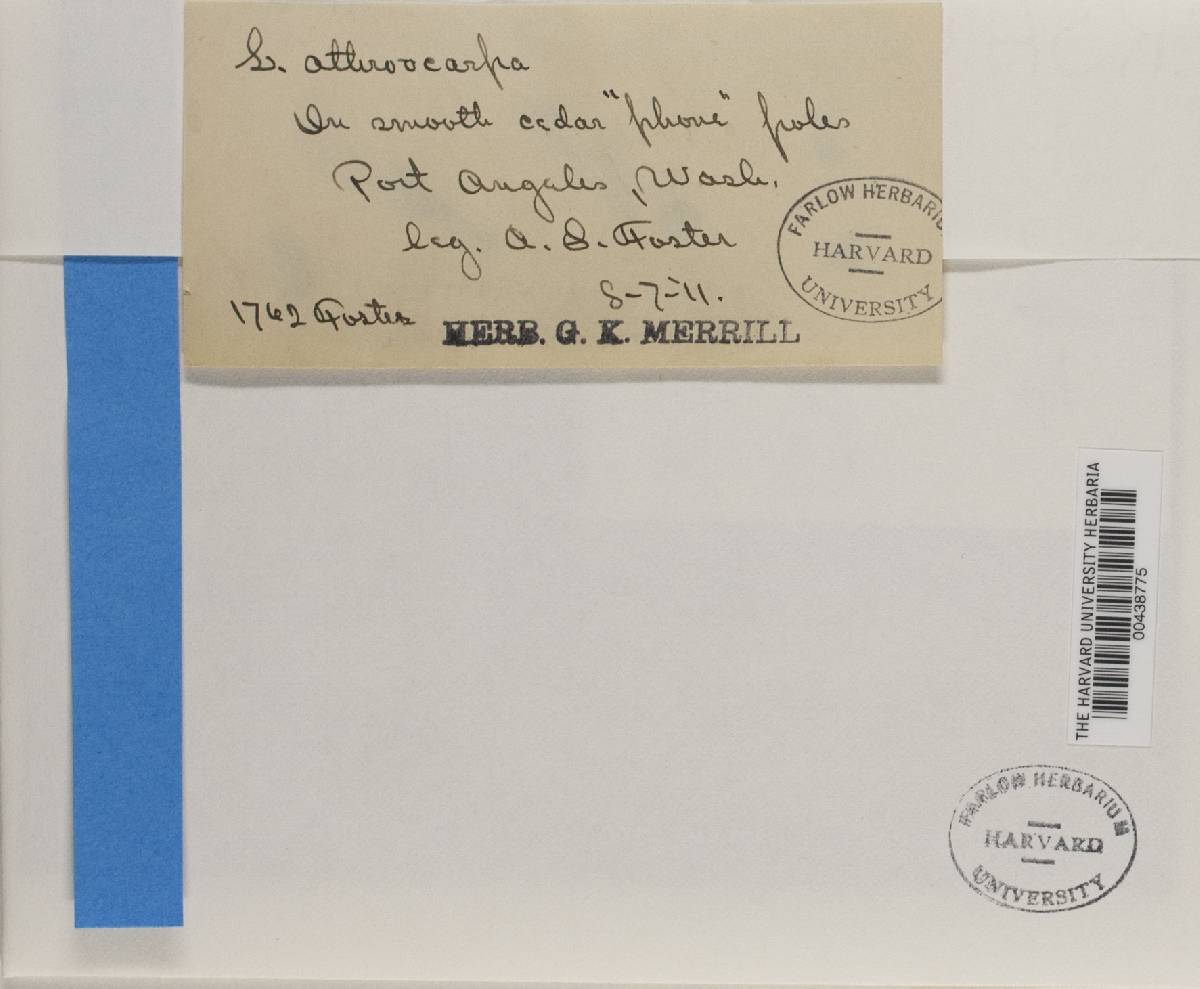 L. athroocarpa
On smooth cedar "phone" poles
Port Angeles, Wash.
leg. A. S. Foster
8-7-11.
1762 Foster
HERB. G. K. MERRILL
FARLOW HERBARIU
HARVARD
UNIVERSITY
THE HARVARD UNIVERSITY HERBARIA
00438775
FARLOW HERBARIUM
HARVARD
UNIVERSITY